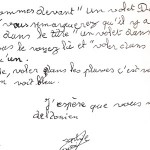 ommes devant " un volet D
vous remarquerez qu'il y a
dans le titre "un volet dans
pas le voyez là et "voler dans
c'un.
de, voler dans les plumes c'est
on voit bleu.
J'espère que vous
de Damien